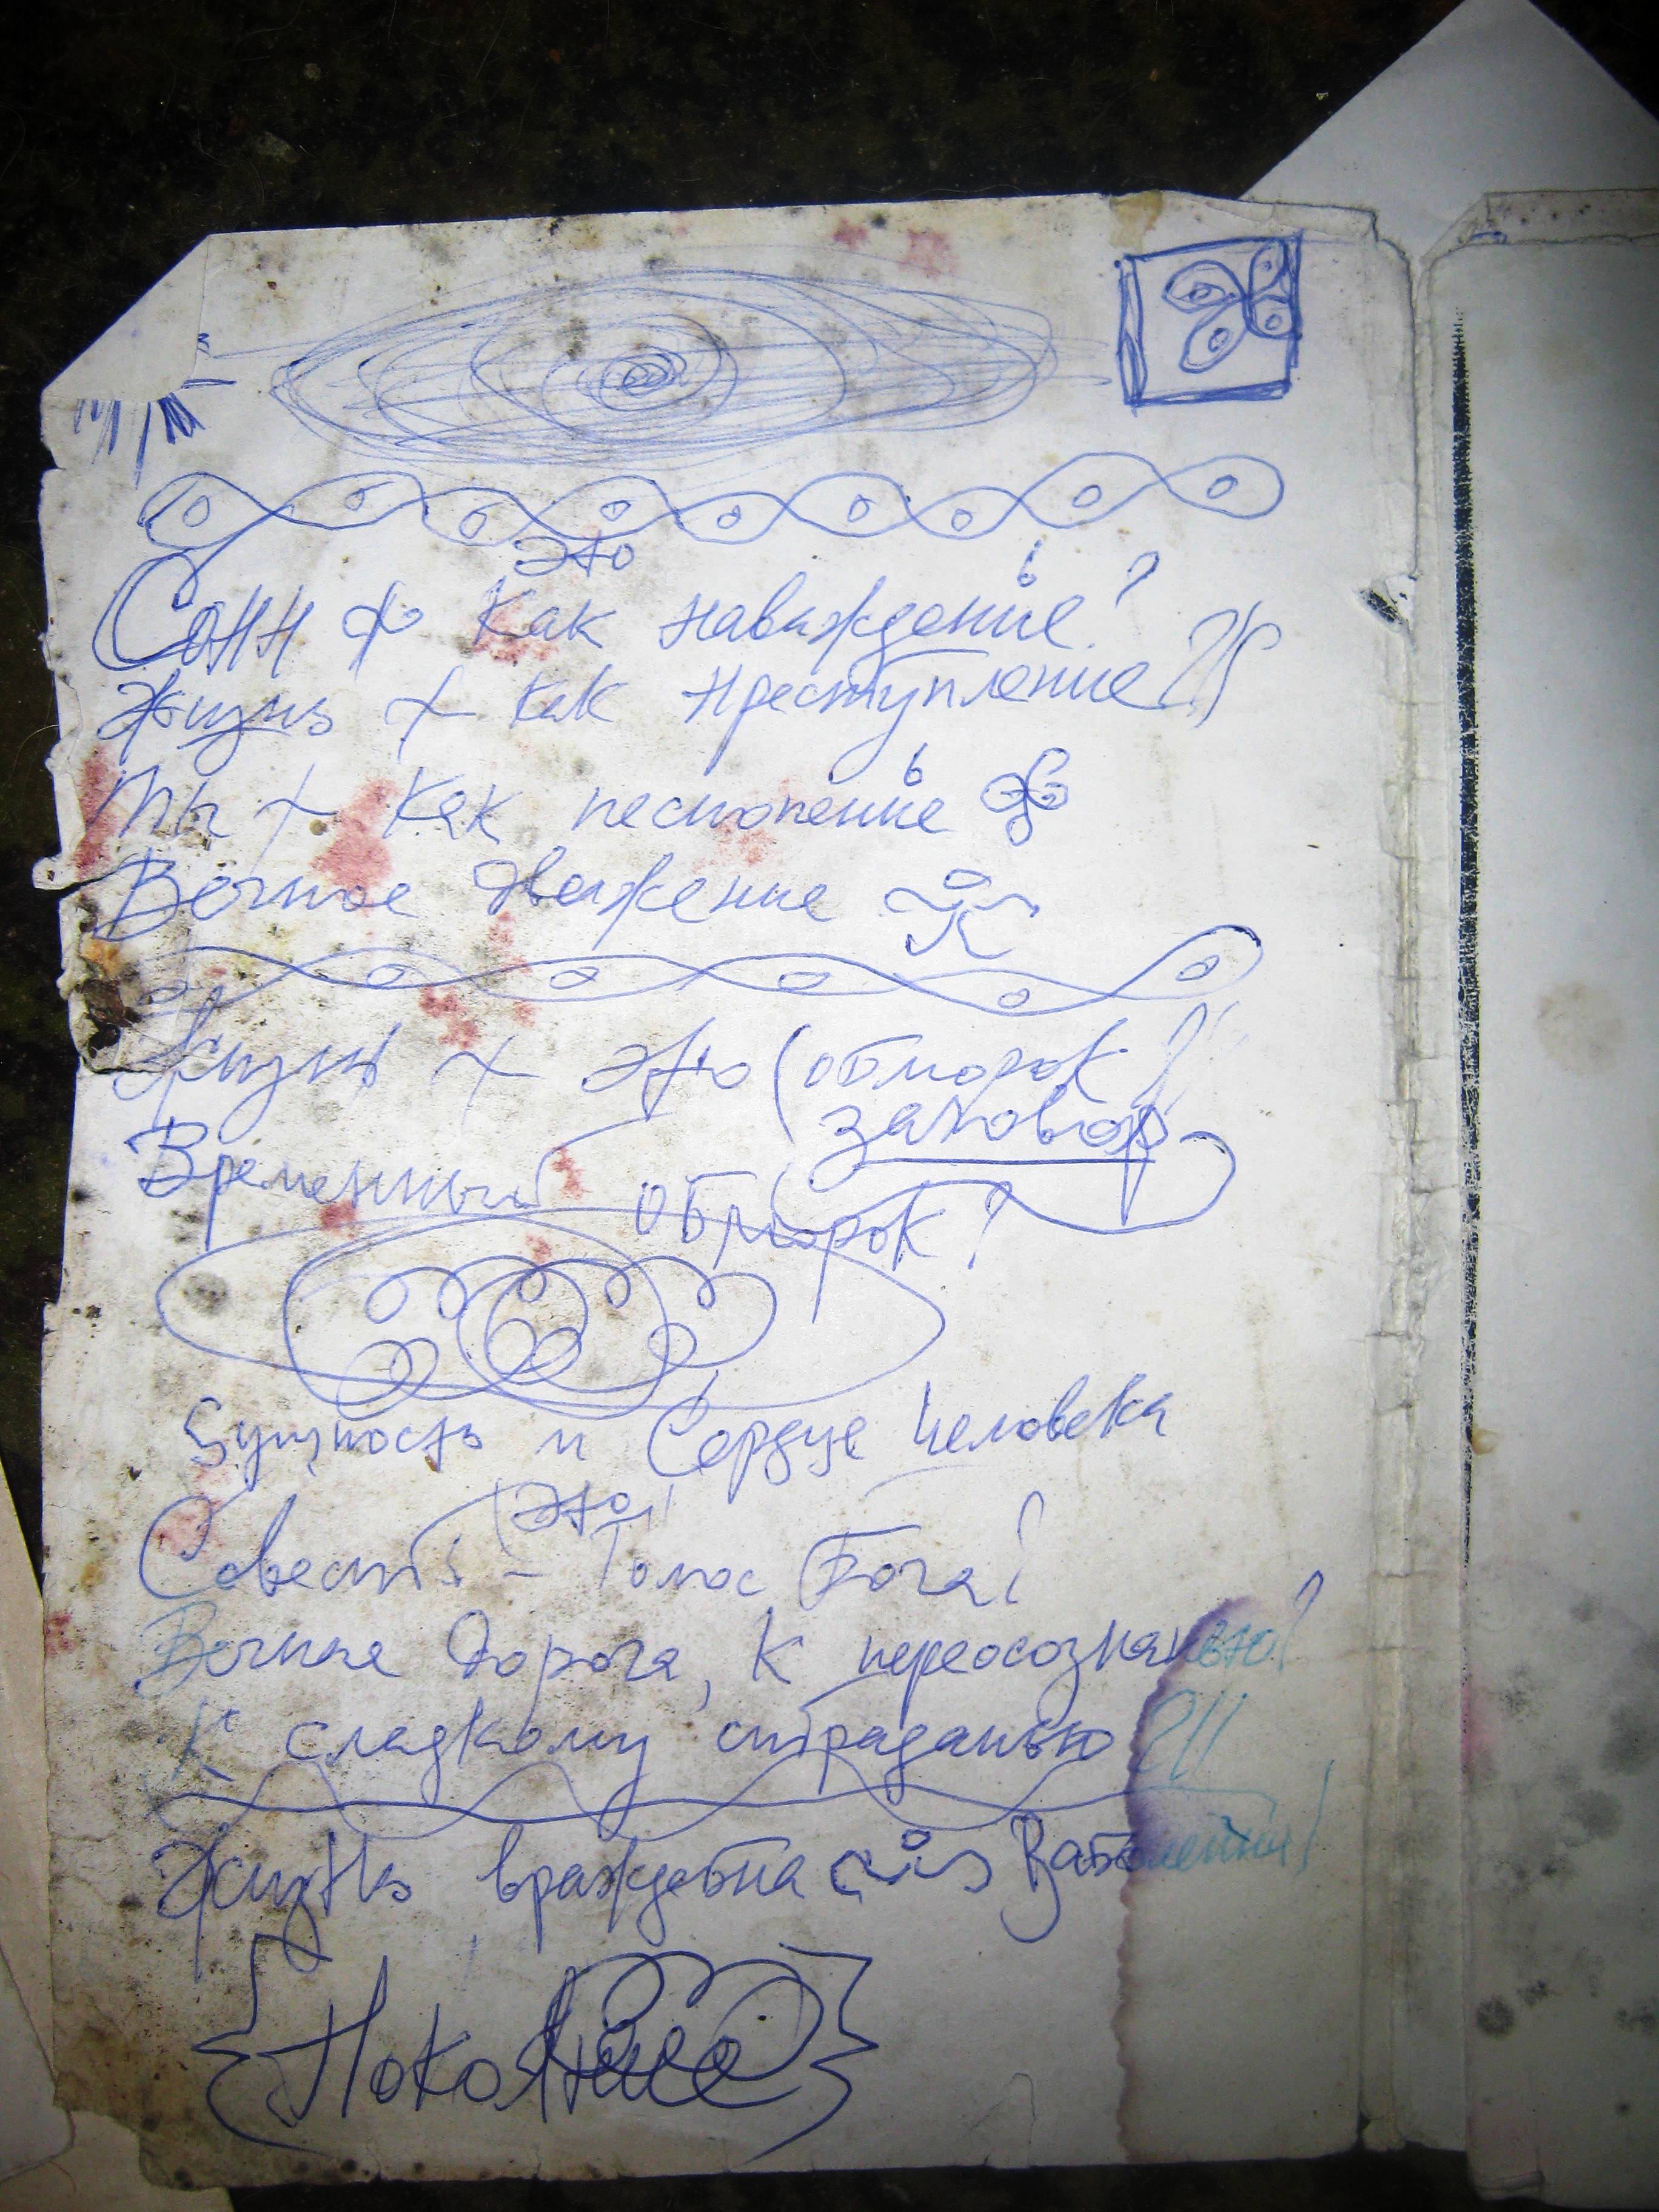 это
Сонн как наваждение?
ь
Жизнь как преступление
ь
Ты как песнопение
Вечное движение
Жизнь это (обморок?
заговор
Временный обморок?
Сущность и Сердце Человека
"Это"
Совесть - Голос Бога?
Вечная дорога, к переосознанью?
К сладкому страданью ?!!
Жизнь враждебна